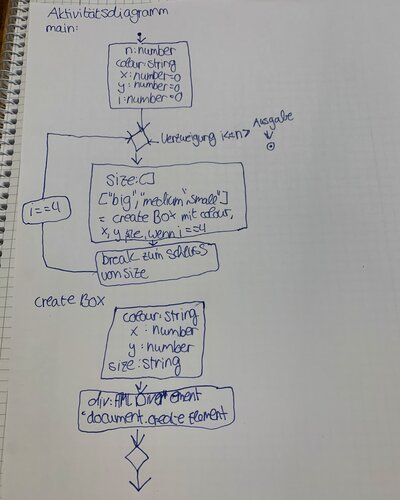 Aktivitätsdiagramm
main:
n:number
colour:string
x:number=0
y:number=0
i:number=0
Verzweigung i<=n>
Ausgabe
i==4
size:[]
["big","medium","small"]
= create Box mit colour,
x, y size, wenn i==4
break zum Schluss
von size
create Box
colour:string
x:number
y:number
size:string
div:HTML Div ement
"document.create Element